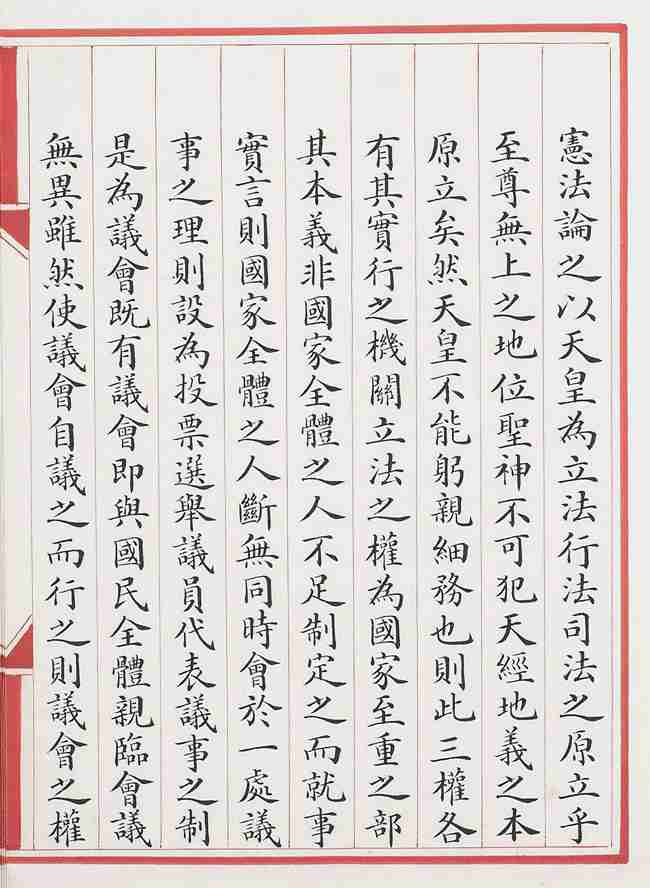 憲法論之以天皇為立法行法司法之原立乎
至尊無上之地位聖神不可犯天經地義之本
原立矣然天皇不能躬親細務也則此三權各
有其實行之機關立法之權為國家至重之部
其本義非國家全體之人不足制定之而就事
實言則國家全體之人斷無同時會於一處議
事之理則設為投票選舉議員代表議事之制
是為議會既有議會即與國民全體親臨會議
無異雖然使議會自議之而行之則議會之權